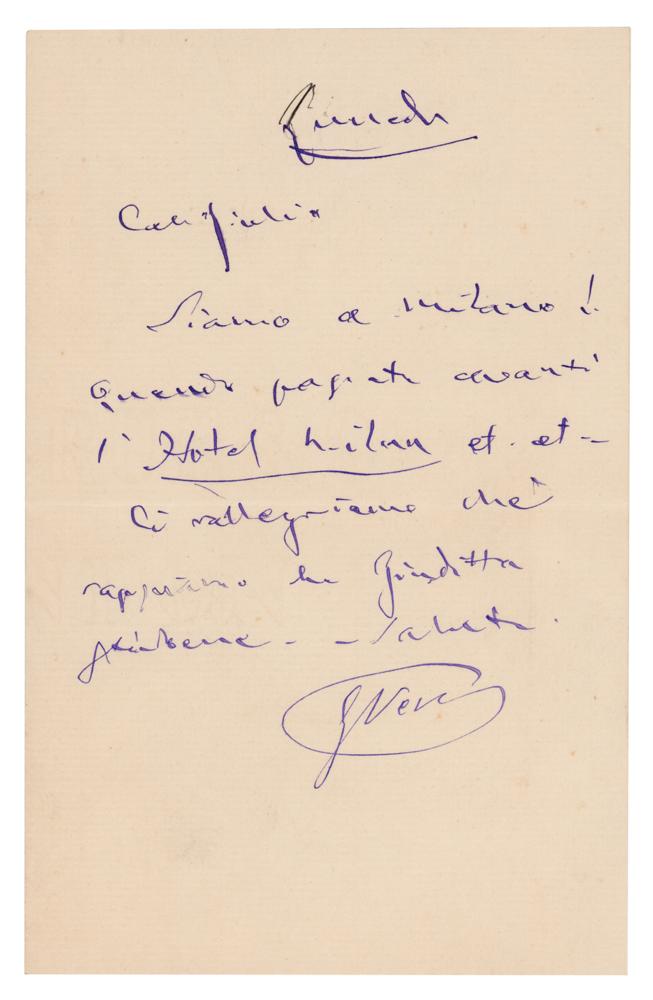 Caro Giulio
Siamo a Milano!
Quando passate avanti
l'Hotel Milan et. et-
Ci rallegriamo chè
sappiamo la Giuditta
stia bene - - Salute.
G Verdi